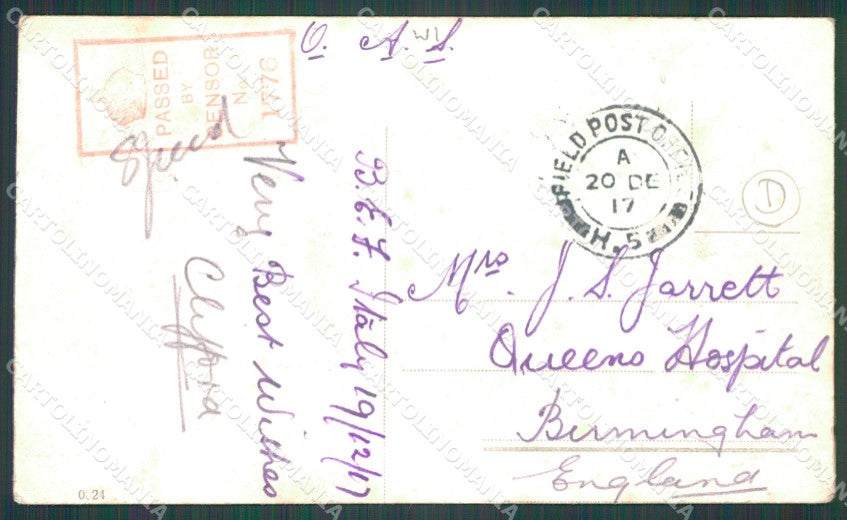 O. A. S.
PASSED
BY
CENSOR
No
FIELD POST OFFICE
A
20 DE
17
H.5
D
B.E.F. Italy 19/12/17
Very Best Wishes
Clifford
Mrs. J. S. Jarrett
Queens Hospital
Birmingham
England
0. 24
CARTOLINOMANIA